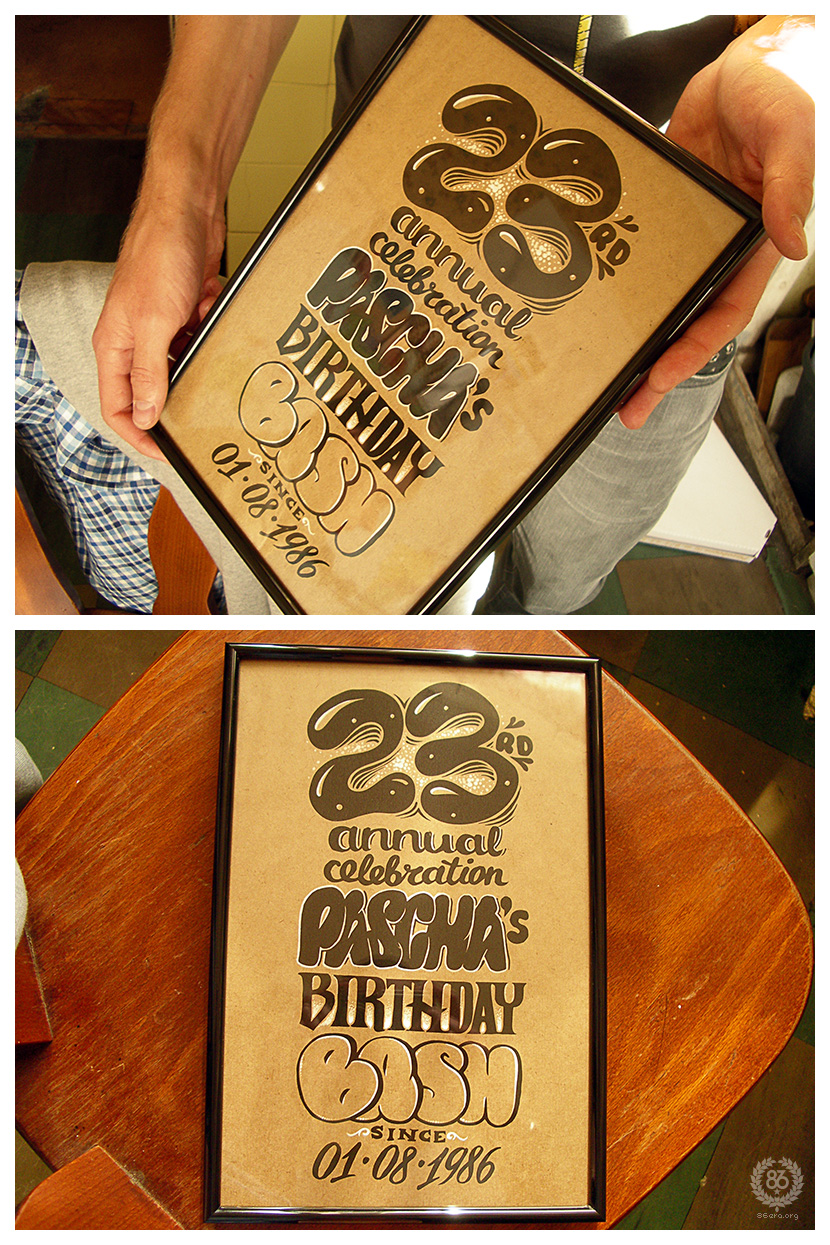 23RD
annual
celebration
PASCHA's
BIRTHDAY
BASH
SINCE
01·08·1986
23RD
annual
celebration
PASCHA's
BIRTHDAY
BASH
SINCE
01·08·1986
86
86era.org